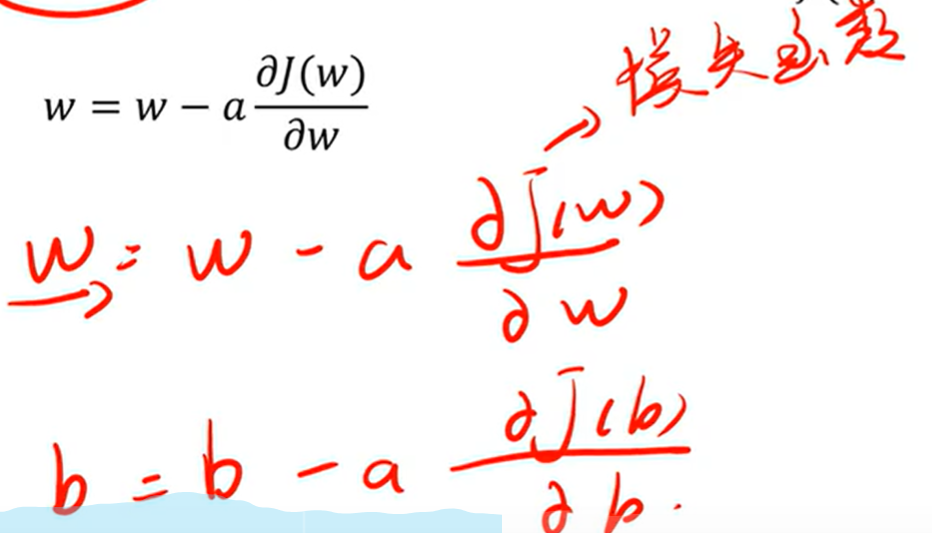 w = w − a ∂J(w)/∂w
损失函数
w = w - a ∂J(w)/∂w
b = b - a ∂J(b)/∂b.